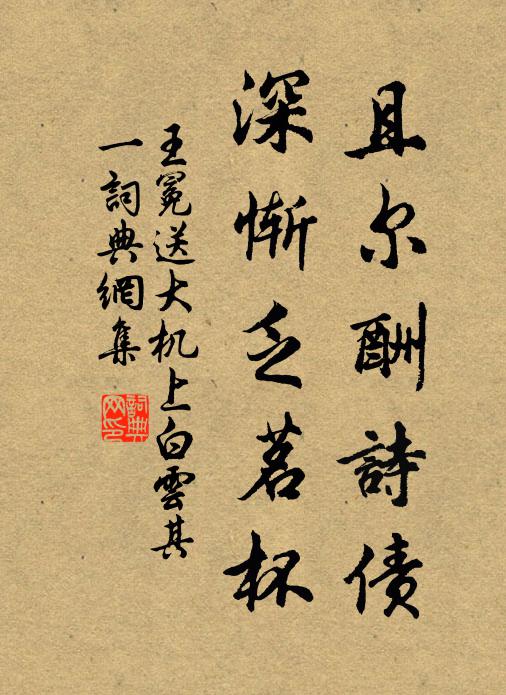 且尔酬詩债
深惭乏茗杯
王冕送大机上白雲其
一詞典網集
詞典
网印